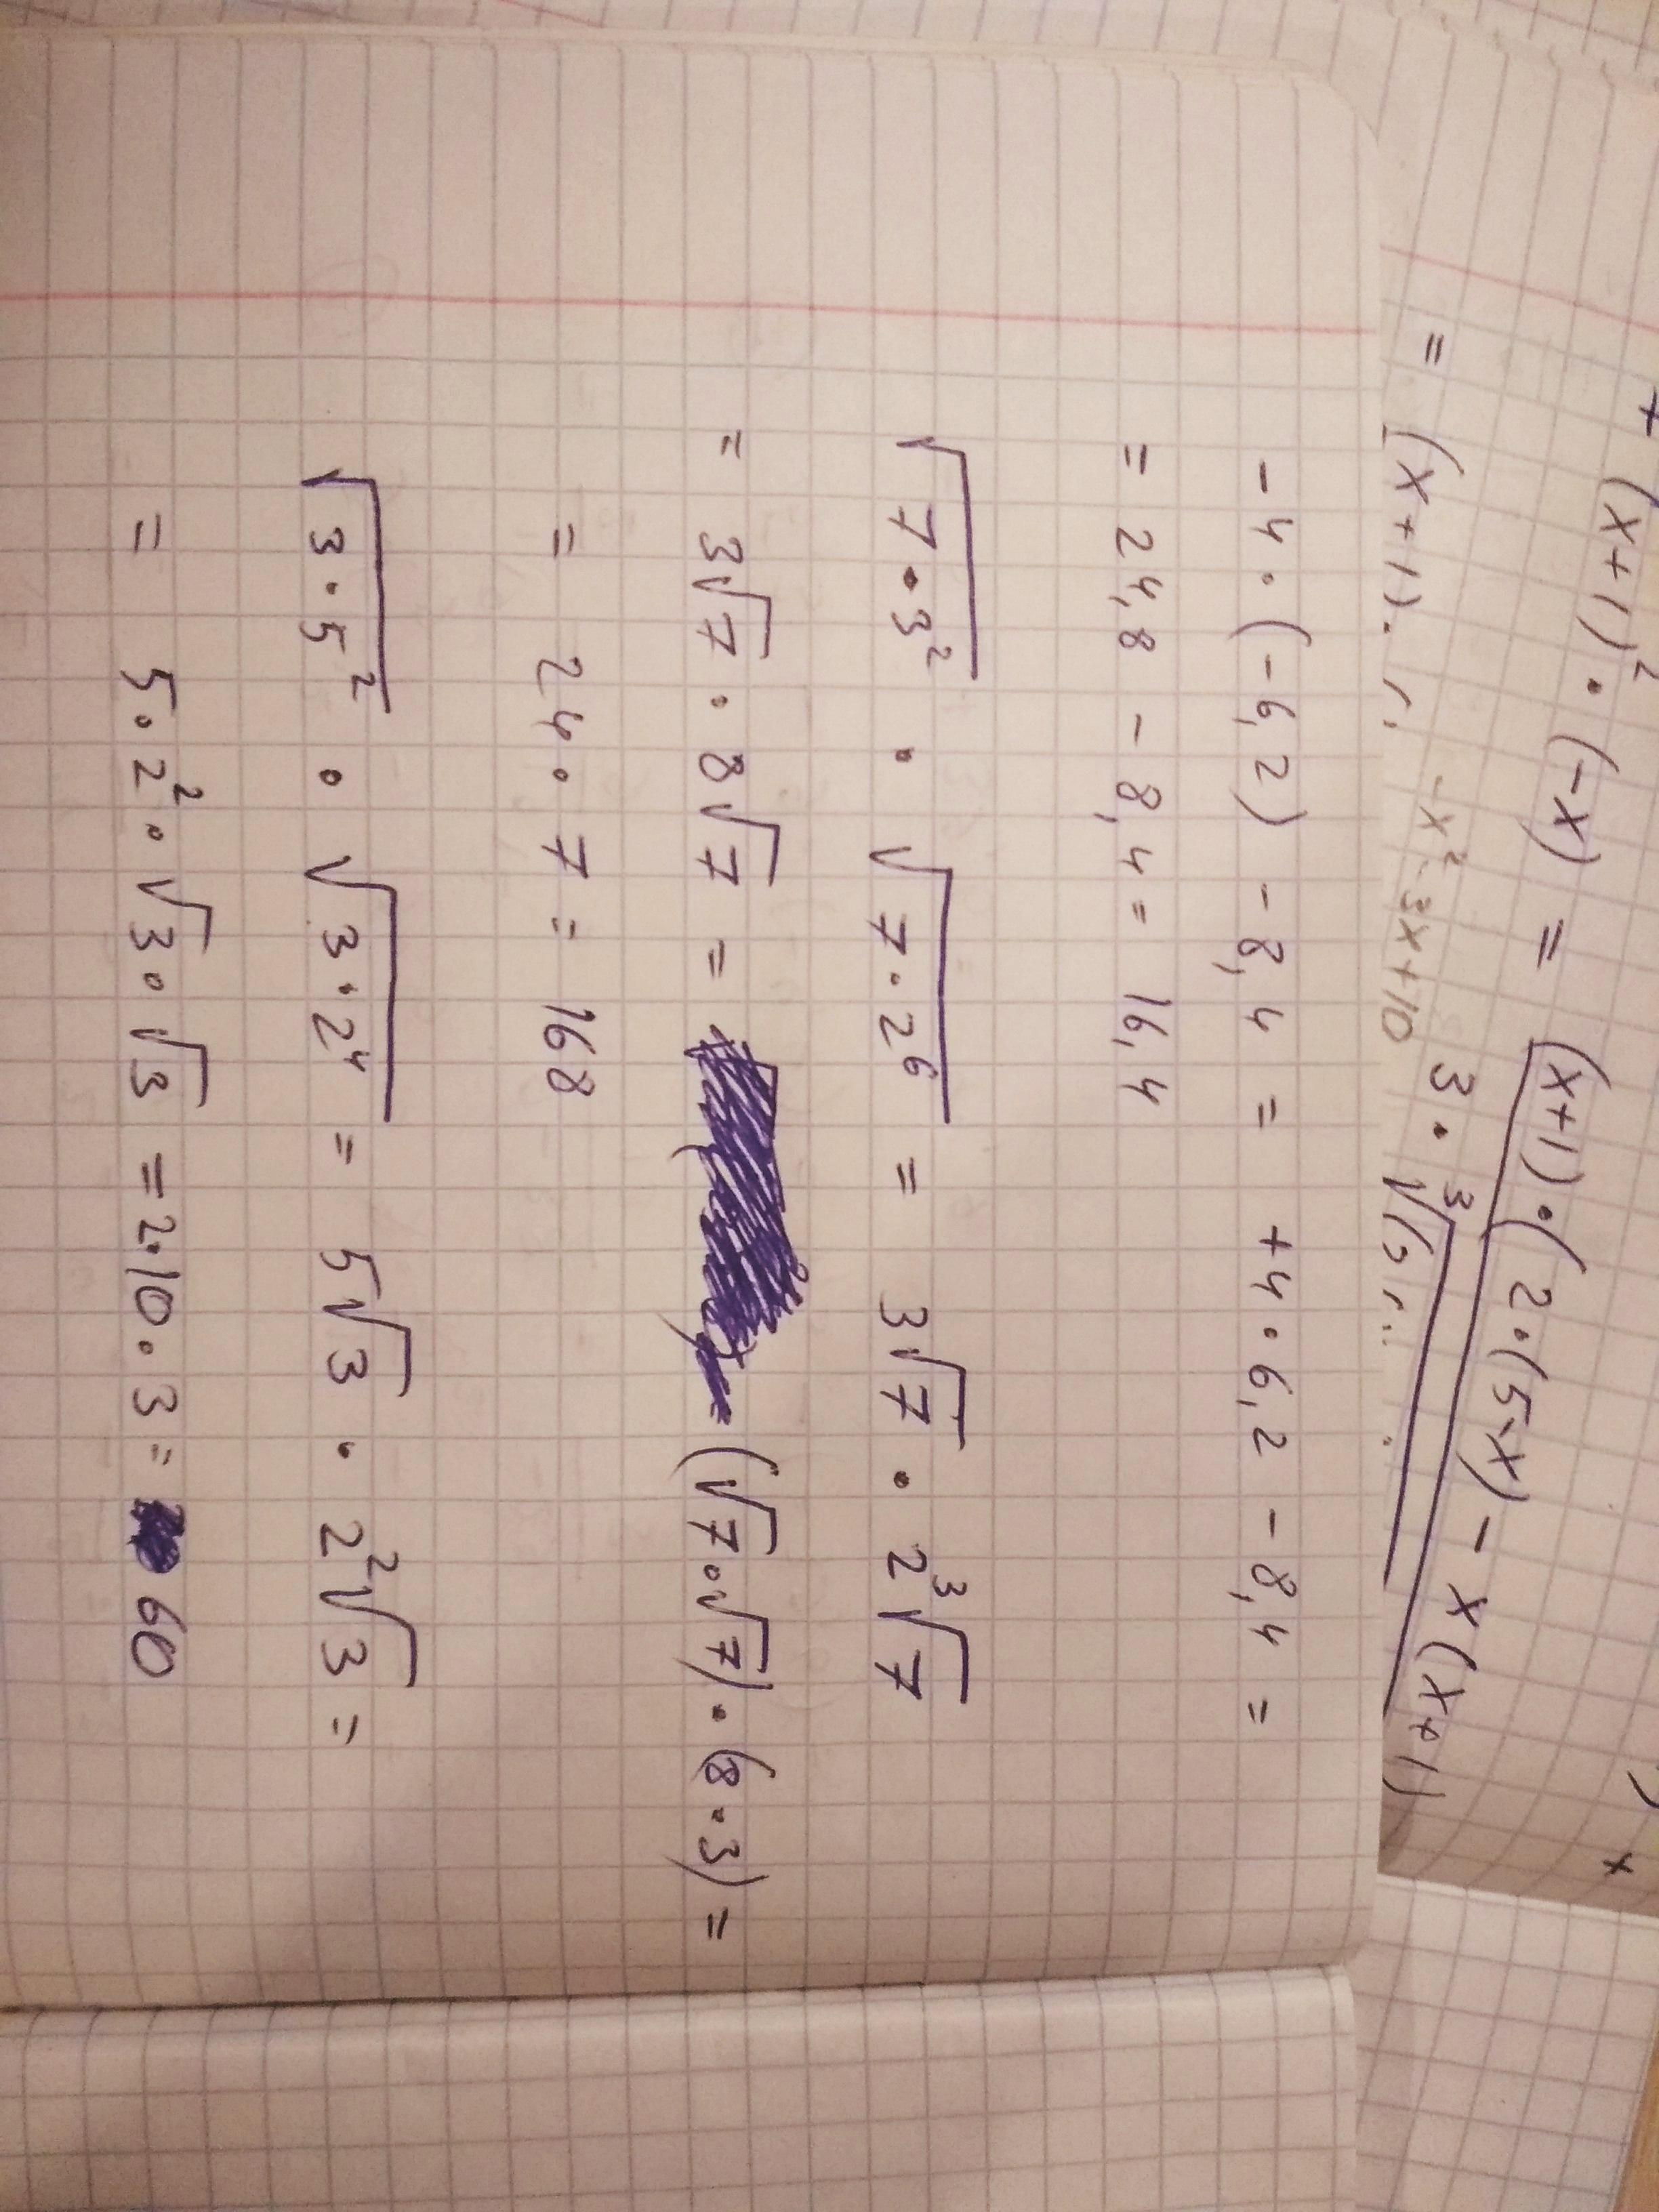 + (x+1)² · (-x) = (x+1) · (2·(5-x) - x(x+1)
= (x+1)
-x² - 3x + 10
3 · ³√
-4 · (-6,2) - 8,4 = +4 · 6,2 - 8,4 =
= 24,8 - 8,4 = 16,4
√7·3² · √7·2⁶ = 3√7 · 2³√7
= 3√7 · 8√7 = (√7·√7) · (8·3) =
= 24 · 7 = 168
√3·5² · √3·2⁴ = 5√3 · 2²√3 =
= 5·2²·√3·√3 = 2·10·3 = 60